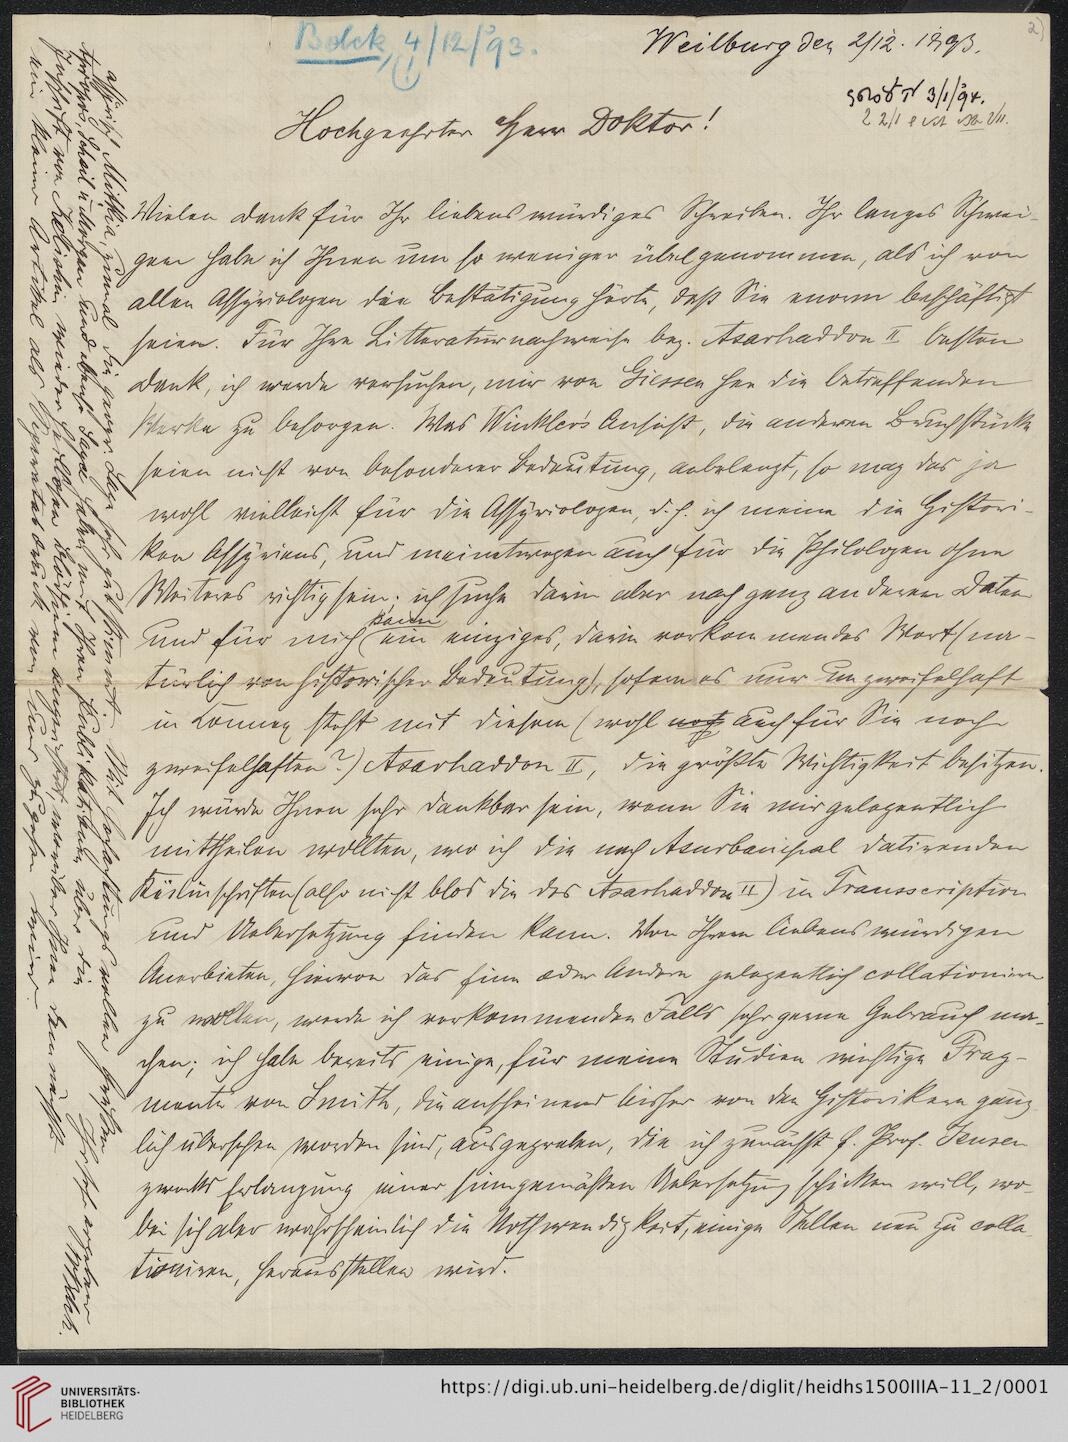 Belck, 4/12/93.
Weilburg den 2/12. 1893.
2)
3/1/94.
Hochgeehrter Herr Doktor!
Vielen Dank für Ihr liebenswürdiges Schreiben. Ihr langes Schwei-
gen habe ich Ihnen um so weniger übelgenommen, als ich von
allen Assyriologen die Bestätigung hörte, daß Sie enorm beschäftigt
seien. Für Ihre Litteraturnachweise bez. Asarhaddon II besten
Dank, ich werde versuchen, mir von Giessen her die betreffenden
Werke zu besorgen. Was Winkler's Ansicht, die anderen Bruchstücke
seien nicht von besonderer Bedeutung, anbelangt, so mag das ja
wohl vielleicht für die Assyriologen, d. h. ich meine die Histori-
ker Assyriens, und meinetwegen auch für die Philologen ohne
Weiteres richtig sein; ich suche darin aber noch ganz anderen Daten
und für mich kann ein einziges, darin vorkommendes Wort (na-
türlich von historischer Bedeutung), sofern es nur unzweifelhaft
in Connex steht mit diesem (wohl noch auch für Sie noch
zweifelhaften?) Asarhaddon II, die größte Wichtigkeit besitzen.
Ich würde Ihnen sehr dankbar sein, wenn Sie mir gelegentlich
mittheilen wollten, wo ich die nach Asurbanipal datirenden
Keilinschriften (also nicht blos die des Asarhaddon II) in Transscription
und Uebersetzung finden kann. Von Ihrem liebenswürdigen
Anerbieten, hiervon das Eine oder Andere gelegentlich collationiren
zu wollen, werde ich vorkommenden Falls sehr gerne Gebrauch ma-
chen; ich habe bereits einige, für meine Studien wichtige Frag-
mente von Smith, die anscheinend bisher von den Historikern gänz-
lich übersehen worden sind, ausgegraben, die ich zunächst H. Prof. Jensen
zwecks Erlangung einer sinngemäßen Uebersetzung schicken will, wo-
bei sich aber wahrscheinlich die Nothwendigkeit, einige Stellen neu zu colla-
tioniren, herausstellen wird.
Mit hochachtungsvollen Grüßen
Ihr sehr ergebener
W. Belck.
UNIVERSITÄTS-
BIBLIOTHEK
HEIDELBERG
https://digi.ub.uni-heidelberg.de/diglit/heidhs1500IIIA-11_2/0001